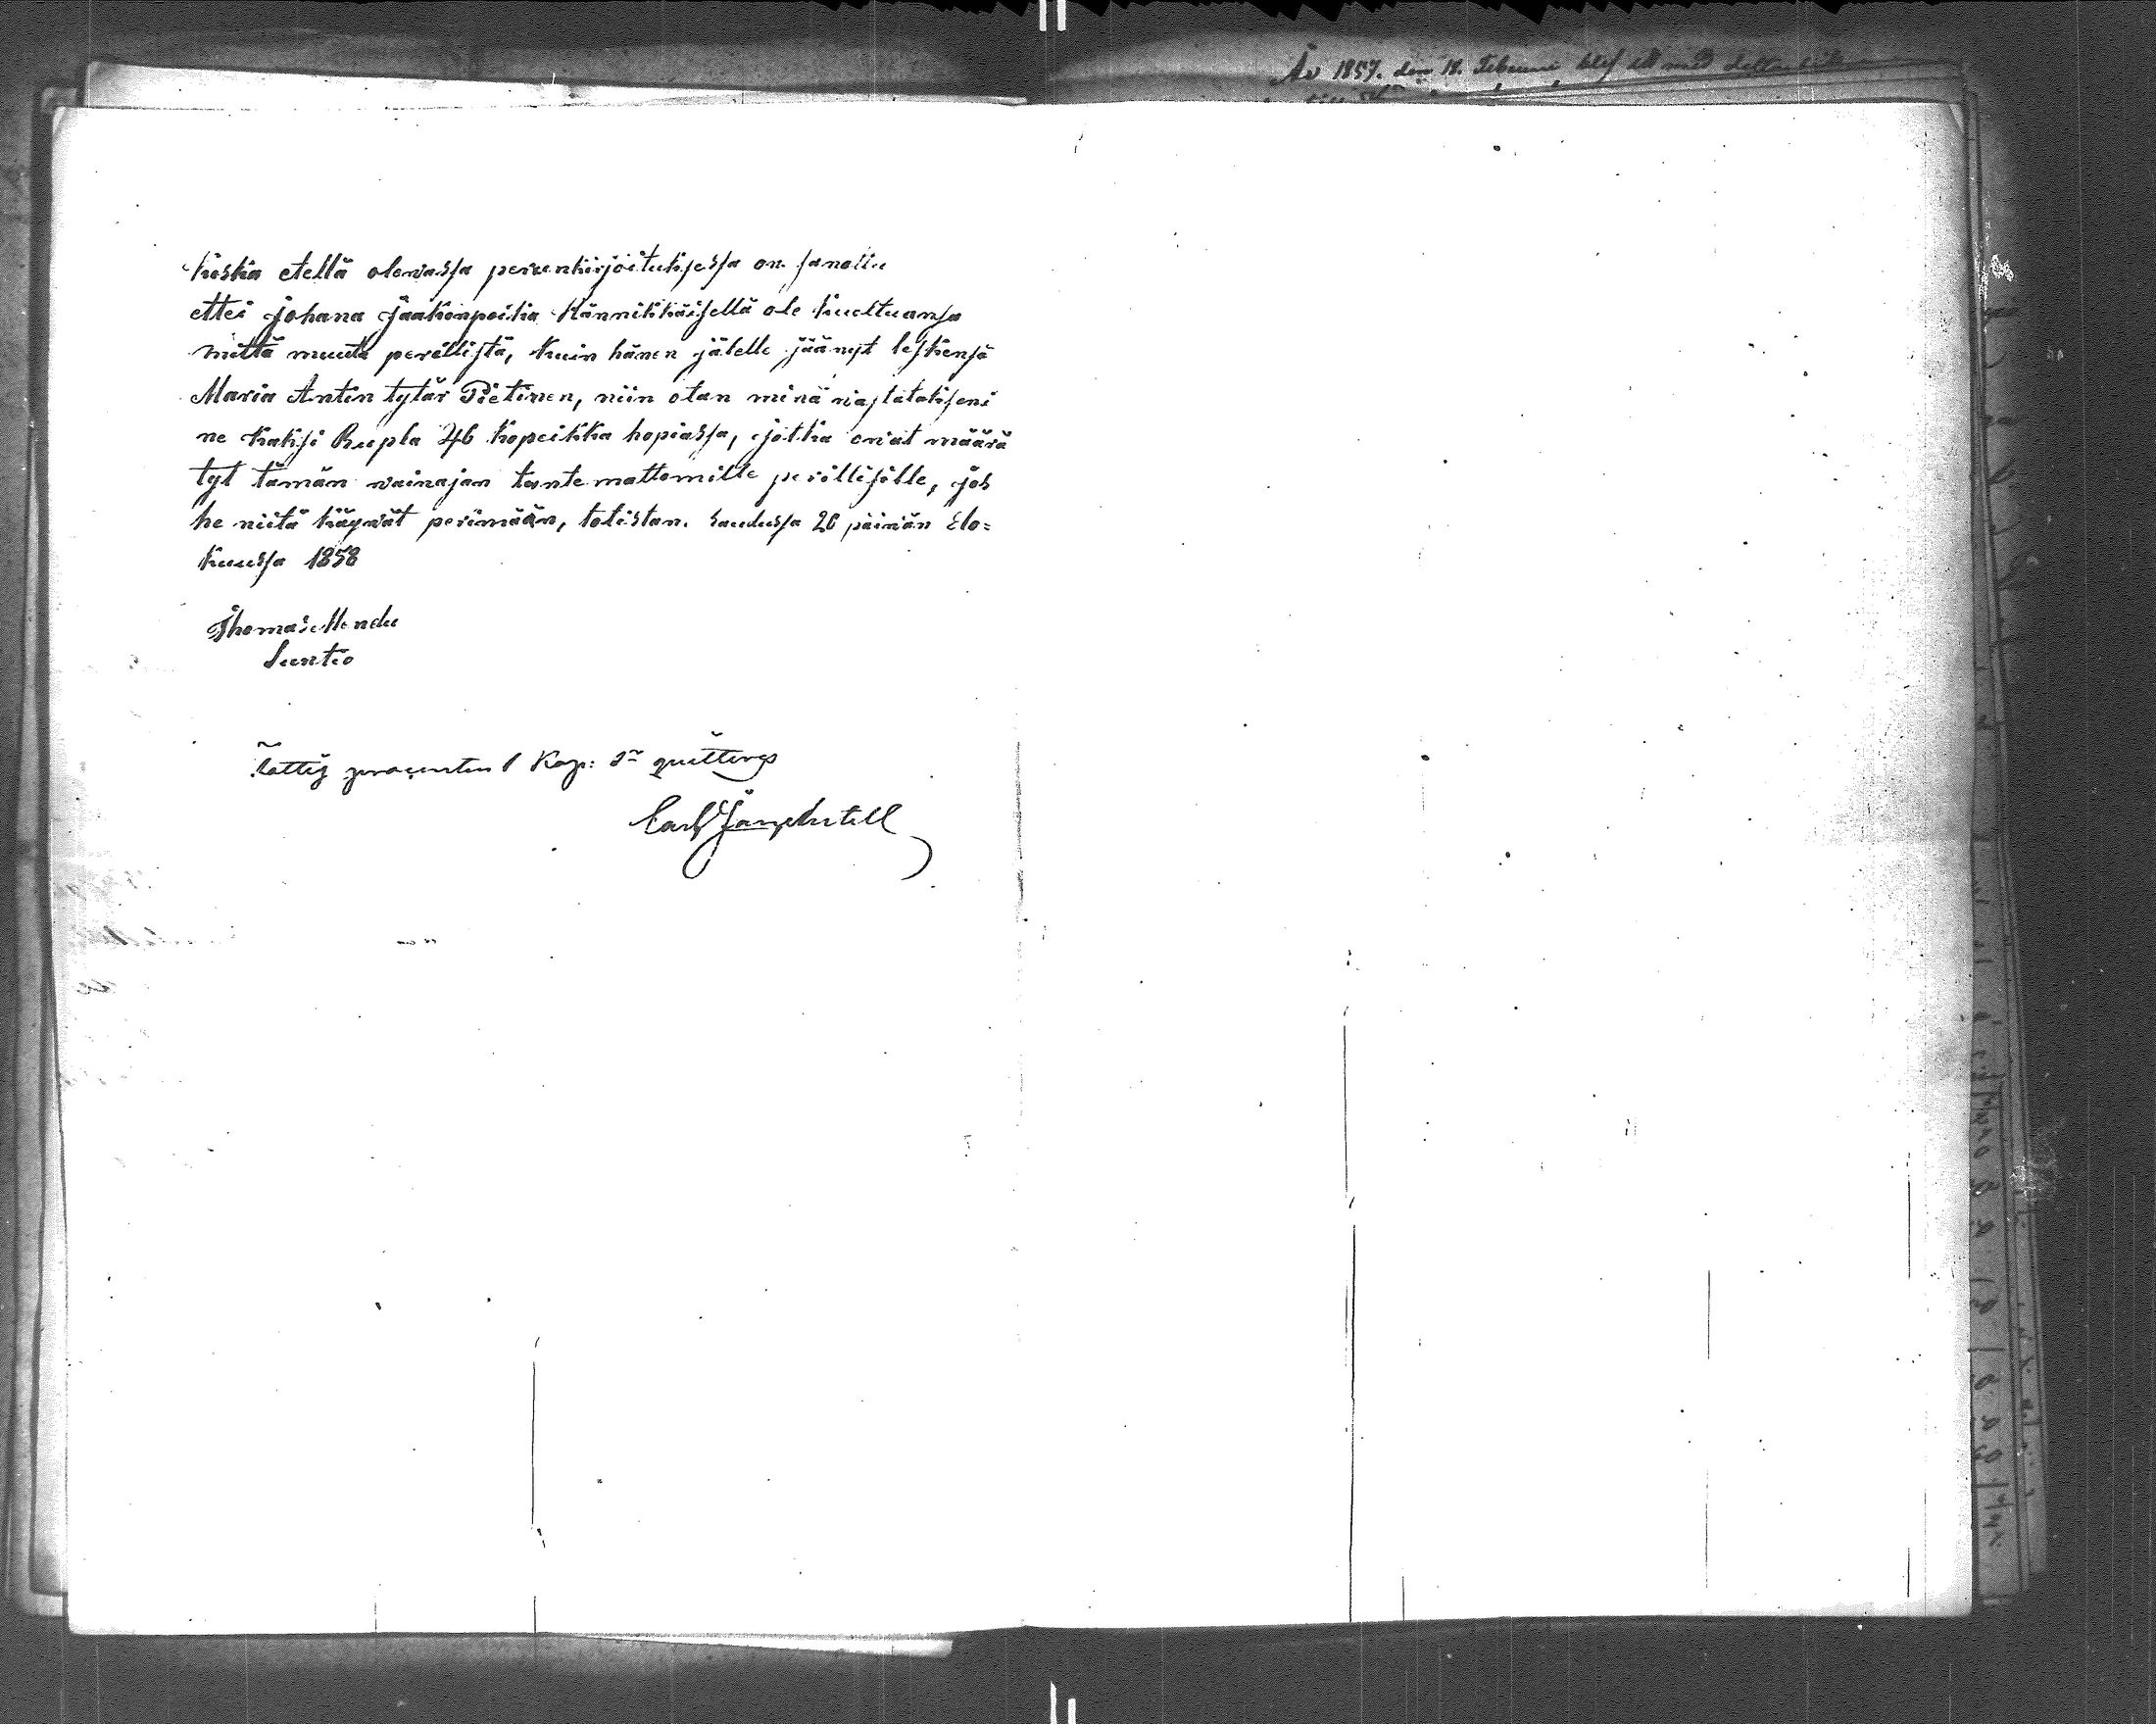 År 1857. den 18. Februari blef
Koska etellä olewassa perunkirjoituksessa on sanottu
ettei Johana Jaakonpoika Hännikkäisellä ole kuoltuansa
mittä muuta perillistä, kuin hänen jälelle jäänyt leskensä
Maria Antin tytär Pietinen, niin otan minä wastatakseni
ne kaksi Rupla 46 kopeikka hopiassa, jotka owat määrä
tyt tämän wainajan tuntemattomille perillisille, jos
he niitä käywät perimään, totistan. 20 päiwän Elo=
kuussa 1858
Thomas
Suntio
procenten 1 Kop: Sr quitteras
Carl